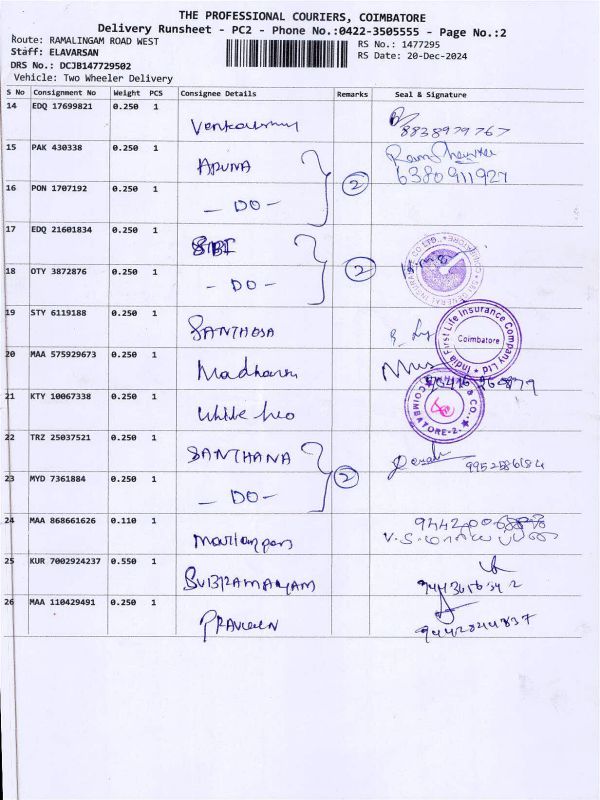 THE PROFESSIONAL COURIERS, COIMBATORE
Delivery Runsheet - PC2 - Phone No.:0422-3505555 - Page No.:2
Route: RAMALINGAM ROAD WEST
RS No.: 1477295
Staff: ELAVARSAN
RS Date: 20-Dec-2024
DRS No.: DCJB147729502
Vehicle: Two Wheeler Delivery
S No Consignment No Weight PCS Consignee Details Remarks Seal & Signature
14 EDQ 17699821 0.250 1
8838979767
15 PAK 430338 0.250 1 ARUNA
2
6380911927
16 PON 1707192 0.250 1 - DO -
17 EDQ 21601834 0.250 1 SBI
2
18 OTY 3872876 0.250 1 - DO -
19 STY 6119188 0.250 1 SANTHOSA
India First Life Insurance Company Ltd
Coimbatore
20 MAA 575929673 0.250 1
21 KTY 10067338 0.250 1 White Leo
& CO.,
COIMBATORE-2.
22 TRZ 25037521 0.250 1 SANTHANA
2
23 MYD 7361884 0.250 1 - DO -
24 MAA 868661626 0.110 1
25 KUR 7002924237 0.550 1 SUBRAMANYAM
26 MAA 110429491 0.250 1 PRAVEEN
9442844837